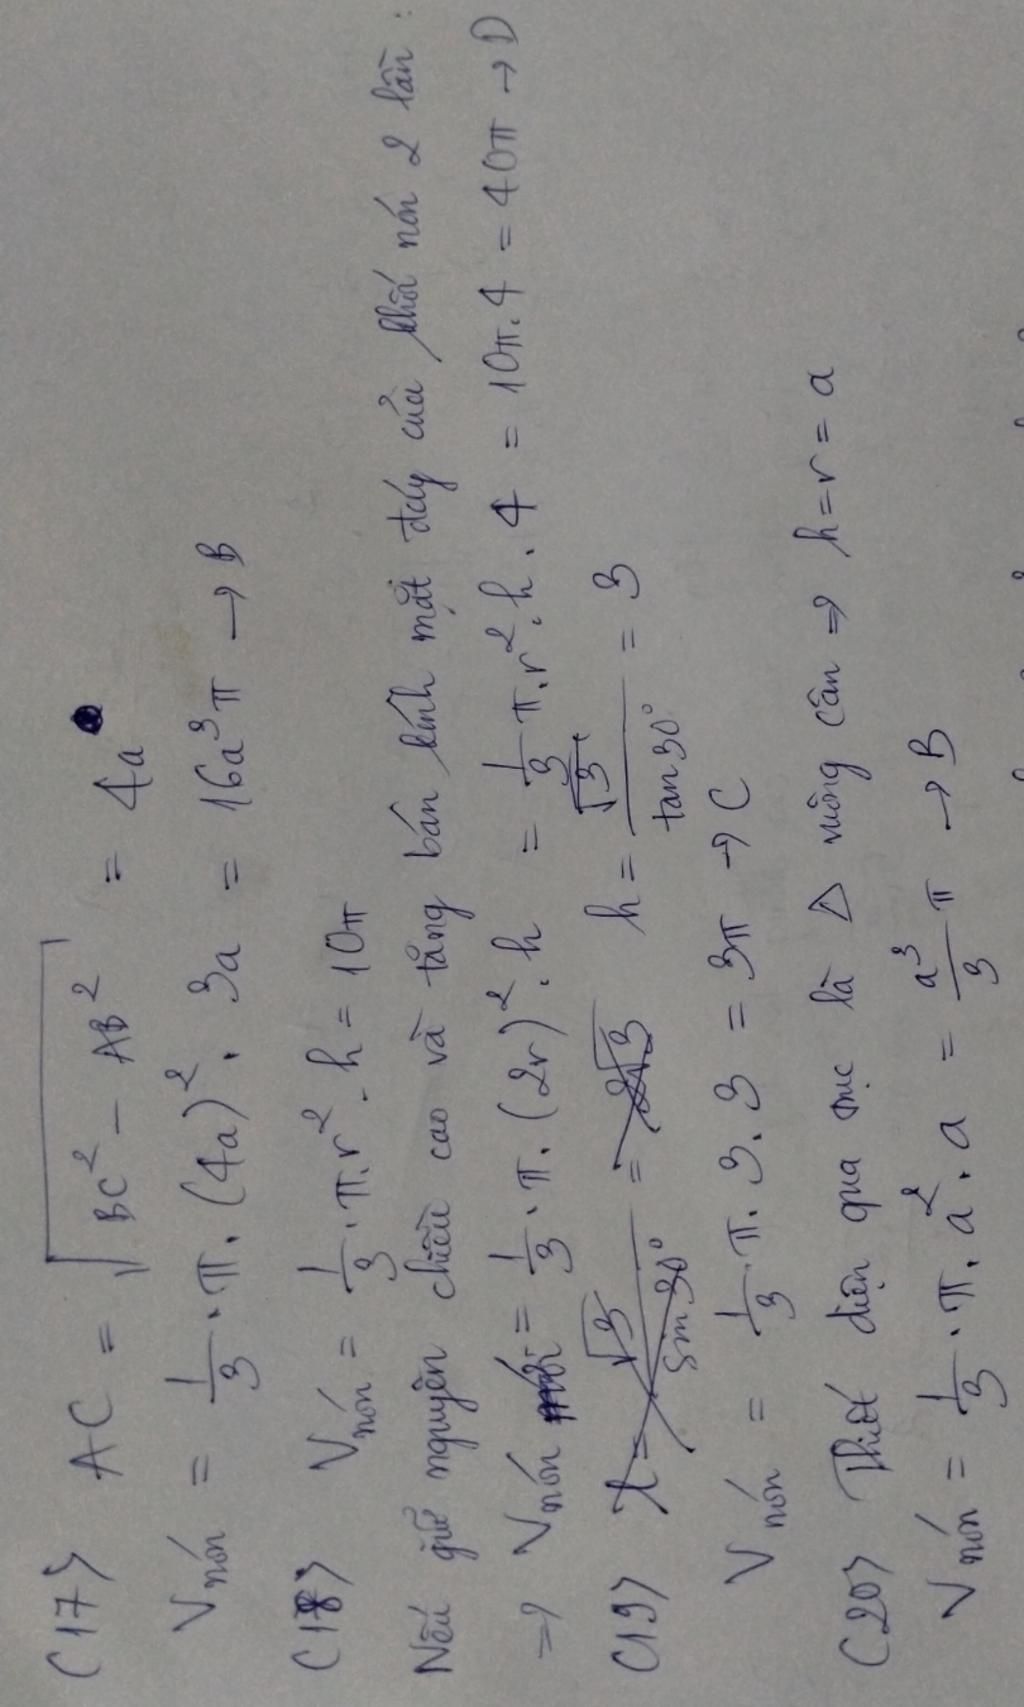 C17> AC = √(BC² - AB²) = 4a
Vnón = 1/3 . π . (4a)² . 3a = 16a³π → B
C18> Vnón = 1/3 . π.r² . h = 10π
Nếu giữ nguyên chiều cao và tăng bán kính mặt đáy của khối nón 2 lần:
=> Vnón = 1/3 . π . (2r)² . h = 1/3 π.r².h.4 = 10π.4 = 40π → D
C19> l = √3/sin30° = 2√3 h = √3/tan30° = 3
Vnón = 1/3 . π . 3 . 3 = 3π → C
C20> Thiết diện qua trục là Δ vuông cân => h = r = a
Vnón = 1/3 . π . a² . a = a³/3 π → B